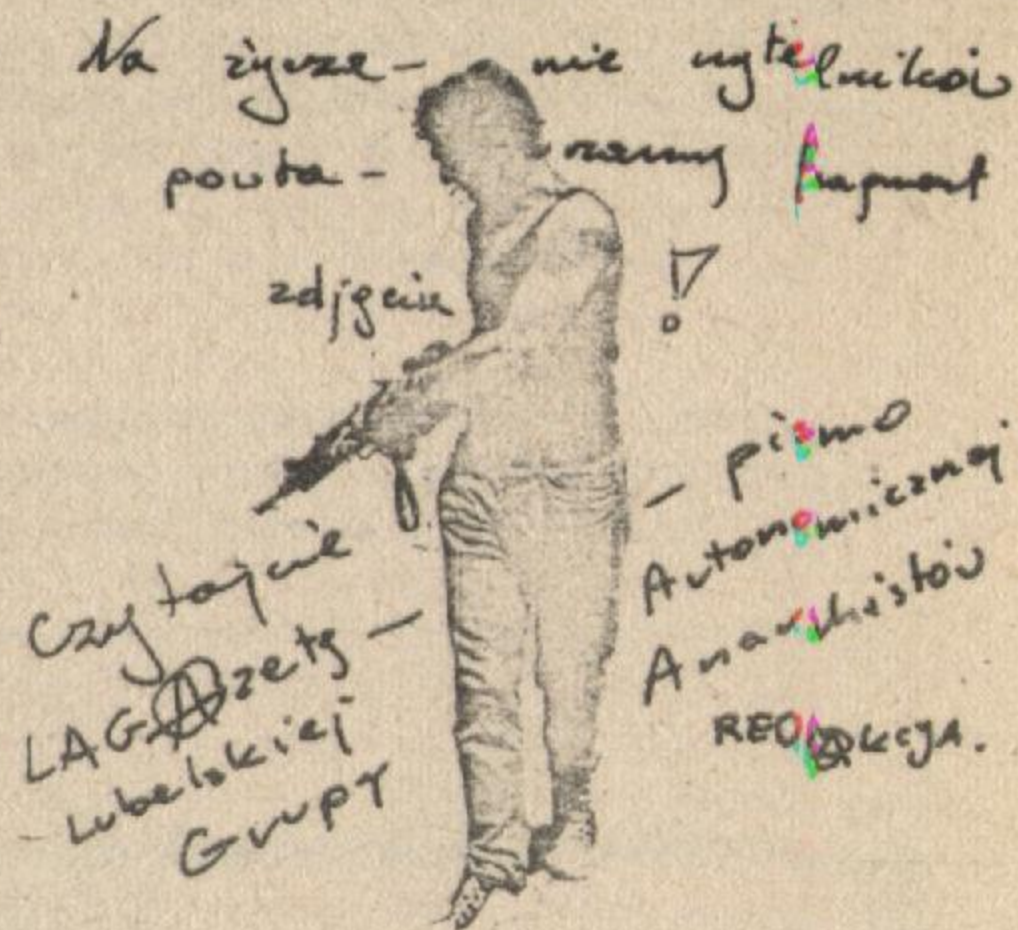 Na życze- nie czytelników
powta- rzamy fragment
zdjęcia !
Czytajcie
LAGAzetę -
Lubelskiej
Grupy
- pismo
Autonomicznej
Anarchistów
REDAKCJA.